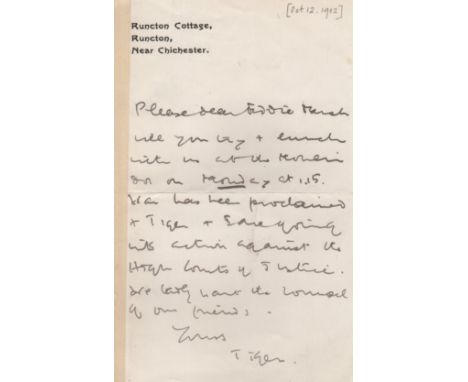 [Oct 12. 1912]
Runcton Cottage,
Runcton,
Near Chichester.
Please dear Eddie Marsh
will you try & lunch
with us at the
on Monday at 1.15.
War has been proclaimed
& Tiger & I are going
into action against the
High Courts of Justice.
We badly want the counsel
of our friends.
Yours
Tiger.